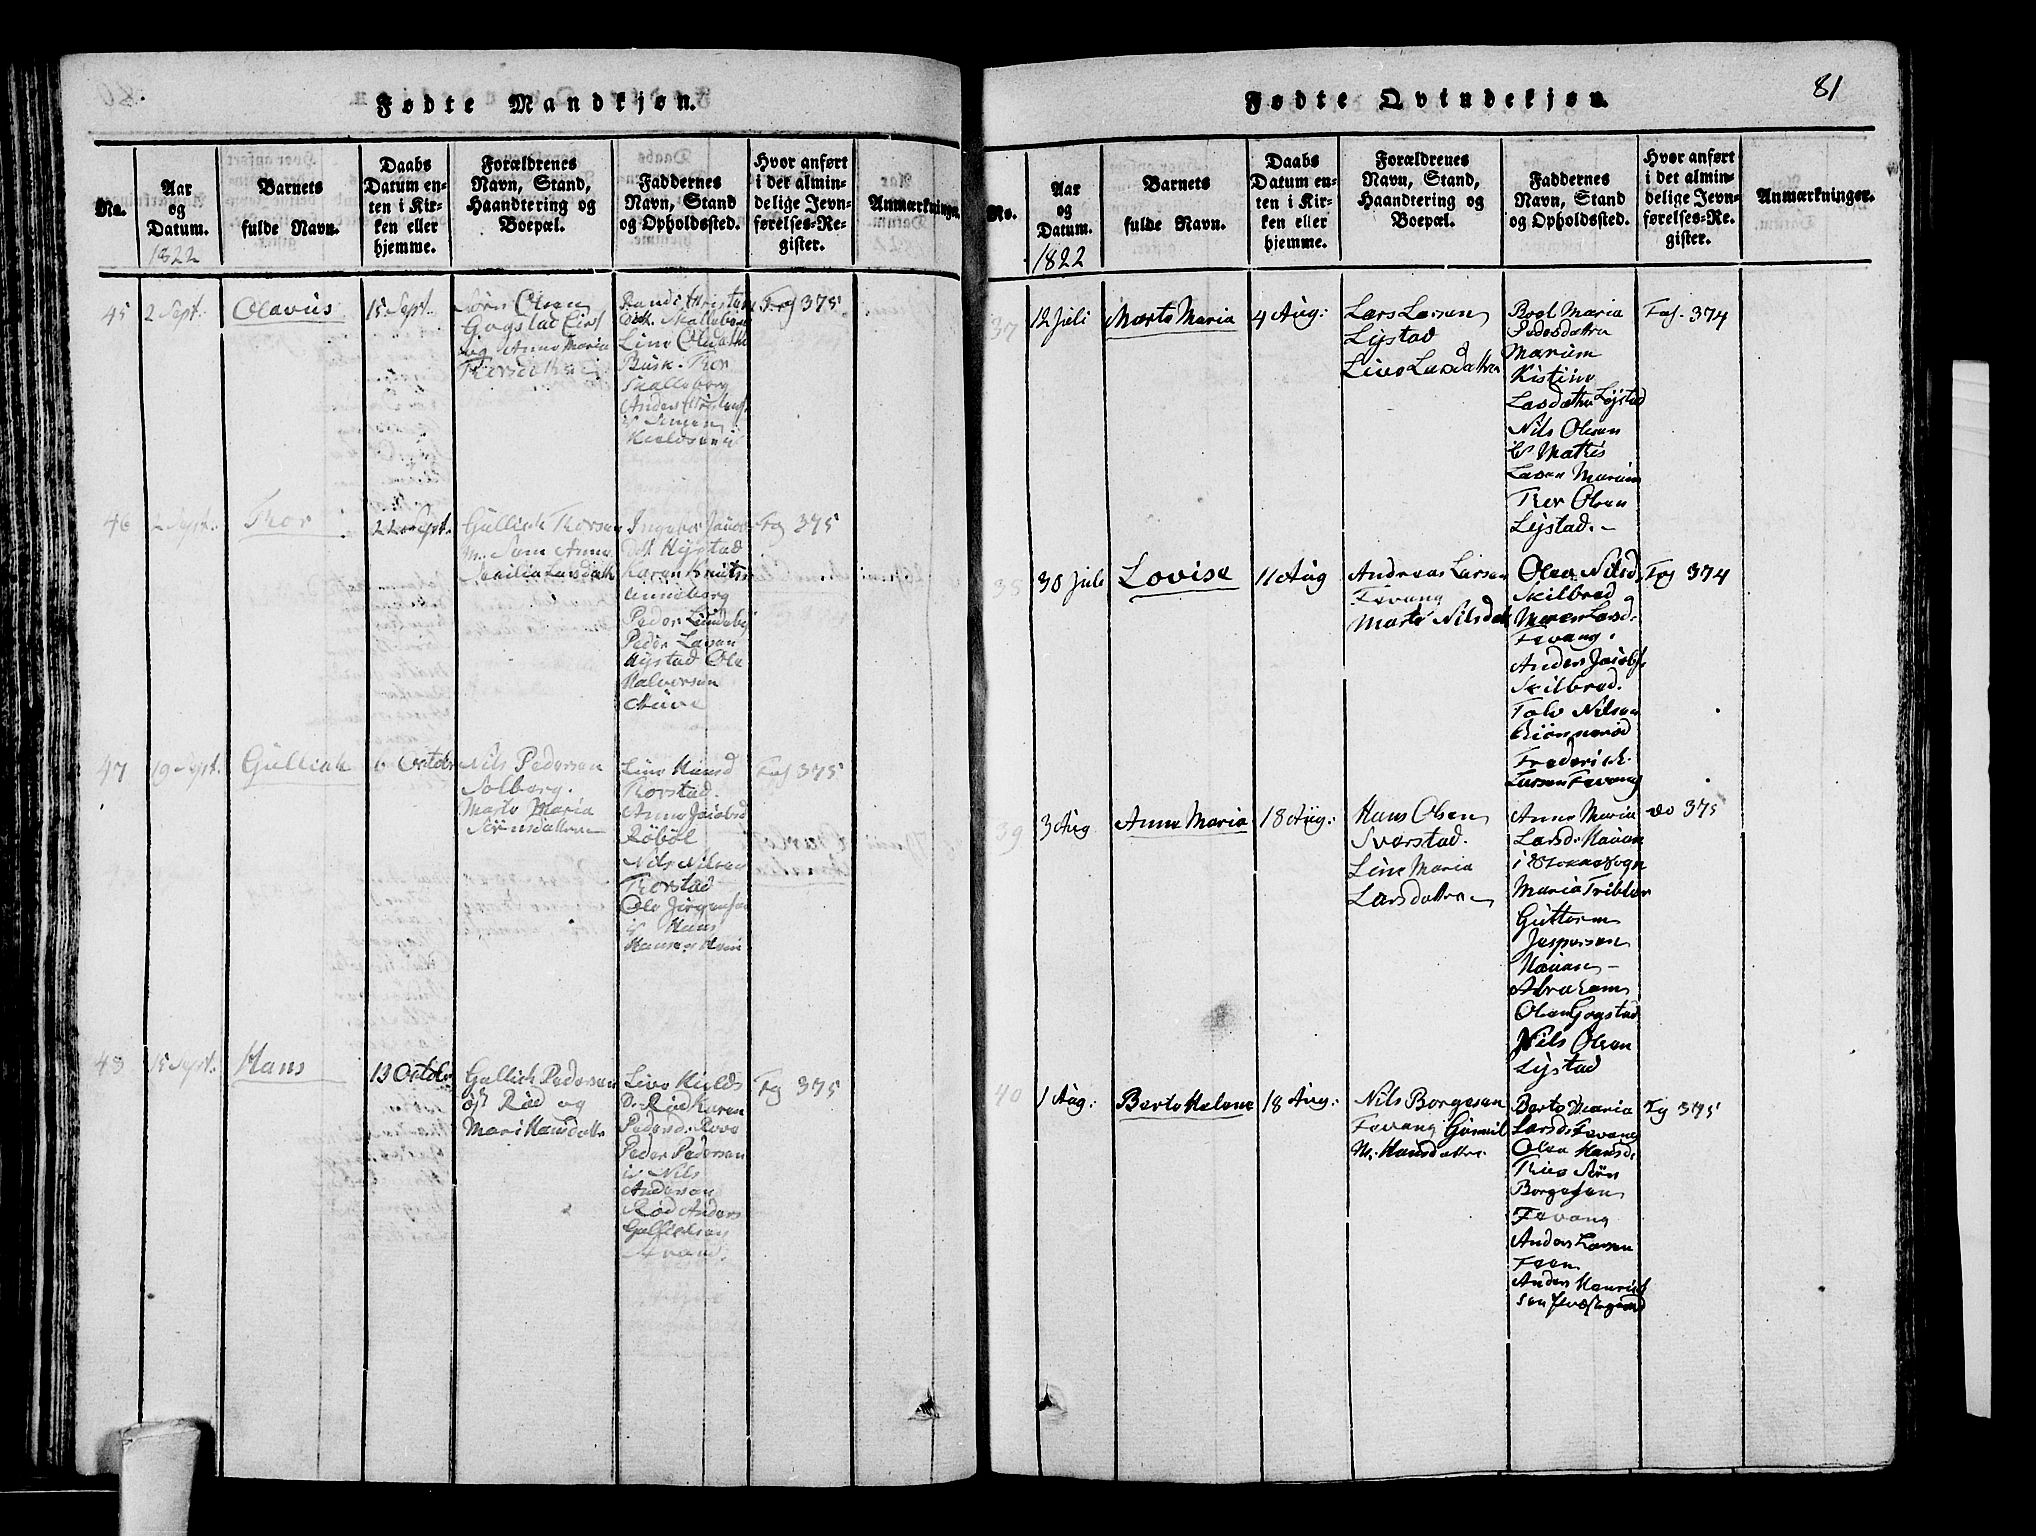 Fødte Mandkjøn.
No.
Aar
og
Datum.
1822
Barnets
fulde Navn.
Daabs
Datum en-
ten i Kir-
ken eller
hjemme.
Forældrenes
Navn, Stand,
Haandtering og
Boepæl.
Faddernes
Navn, Stand
og Opholdssted.
Hvor anført
i det almin-
delige Jevn-
førelses-Re-
gister.
Anmærkninger.
45
2 Sept.
Olavus
15 Sept.
Sørn Olsen
Gogstad
og Anne Maria
Thorsdatter
Skalleberg
Line
Busk. Thor
Skalleberg
Anders
& Simen
Fol 375
46
2 Sept.
Thor
22 Sept.
Gullich Thorsen
Anne
Larsdatt
Hystad
Karen Knuts
Anneberg
Peder Lundeby
Peder Larsen
Hystad Ole
Halvorsen
Fol 375
47
19 Sept.
Gullich
6 October
Nils Pedersen
Solberg.
Marte Maria
Sørnsdatter
Line Hansd
Thorstad.
Anne Jacobsd
Røbøl
Nils Nilsen
Thorstad
Ole Jørgensen
& Hans
Hansen
Fol 375
48
15 Sept.
Hans
13 October
Gullich Pedersen
Rød og
Mari Hansdatter
Live Kields
D. Rød Karen
Pedersd.
Peder Pedersen
& Nils
Andersen
Rød Anders
Gullichsen
Fol 375
Fødte Qvindekjøn.
81
No.
Aar
og
Datum.
1822
Barnets
fulde Navn.
Daabs
Datum en-
ten i Kir-
ken eller
hjemme.
Forældrenes
Navn, Stand,
Haandtering og
Boepæl.
Faddernes
Navn, Stand
og Opholdssted.
Hvor anført
i det almin-
delige Jevn-
førelses-Re-
gister.
Anmærkninger.
37
12 Juli
Marte Maria
4 Aug:
Lars Larsen
Lystad
Live Larsdatter
Boel Maria
Pedersdatter
Marum
Kistine
Larsdatter Lystad
Nils Olsen
& Mathis
Larsen Marum
Thor Olsen
Lystad.
Fol. 374
38
30 Juli
Lovise
11 Aug
Andreas Larsen
Fevang
Marte Nilsdatt
Olea Nilsd.
Skilbred
Maren Larsd.
Fevang.
Anders Jacobs.
Skilbred.
Tolv Nilsen
Biønnerød
Frederick
Larsen Fevang
Fol 374
39
3 Aug
Anne Maria
18 Aug:
Hans Olsen
Sverstad.
Line Maria
Larsdatter
Anne Maria
Larsd. Hauan
i Stokke Sogn
Maria Tribler
Guttorm
Jespersen
Hauan
Abraham
Olsen Gogstad
Nils Olsen
Lystad
do 375
40
1 Aug:
Berte Helene
18 Aug:
Nils Borgesen
Fevang Gunnil
M. Hansdatter
Berte Maria
Larsd. Fevang
Olea Hansd.
Thies Sørn
Borgesen
Fevang
Anders Larsen
Feen
Anders Henrich
sen
Fol 375